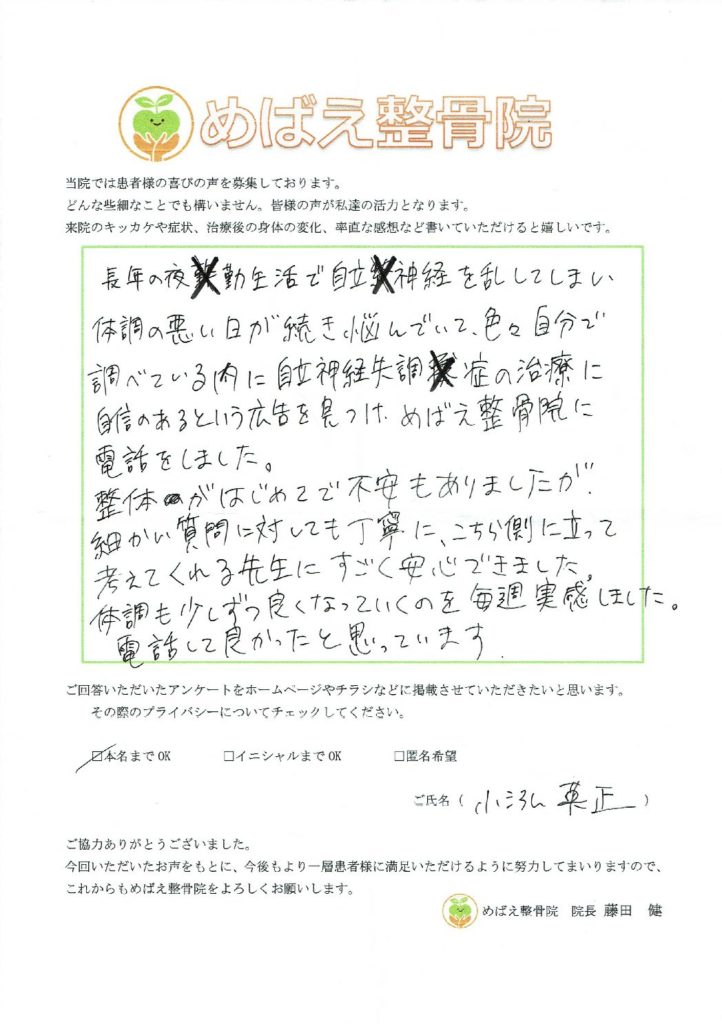 めばえ整骨院
当院では患者様の喜びの声を募集しております。
どんな些細なことでも構いません。皆様の声が私達の活力となります。
来院のキッカケや症状、治療後の身体の変化、率直な感想など書いていただけると嬉しいです。
長年の夜勤生活で自立神経を乱してしまい
体調の悪い日が続き悩んでいて、色々自分で
調べている内に自立神経失調症の治療に
自信のあるという広告を見つけ、めばえ整骨院に
電話をしました。
整体がはじめてで不安もありましたが、
細かい質問に対しても丁寧に、こちら側に立って
考えてくれる先生にすごく安心できました。
体調も少しずつ良くなっていくのを毎週実感しました。
電話して良かったと思っています.
ご回答いただいたアンケートをホームページやチラシなどに掲載させていただきたいと思います。
その際のプライバシーについてチェックしてください。
☑本名まで OK □イニシャルまで OK □匿名希望
ご氏名（ 英正 ）
ご協力ありがとうございました。
今回いただいたお声をもとに、今後もより一層患者様に満足いただけるように努力してまいりますので、
これからもめばえ整骨院をよろしくお願いします。
めばえ整骨院 院長 藤田 健